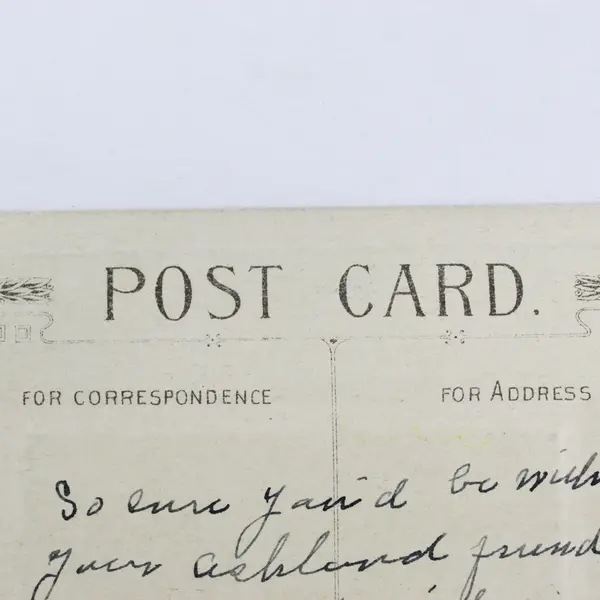 POST CARD.
FOR CORRESPONDENCE FOR ADDRESS
So sure you'd be with
your ashland friend